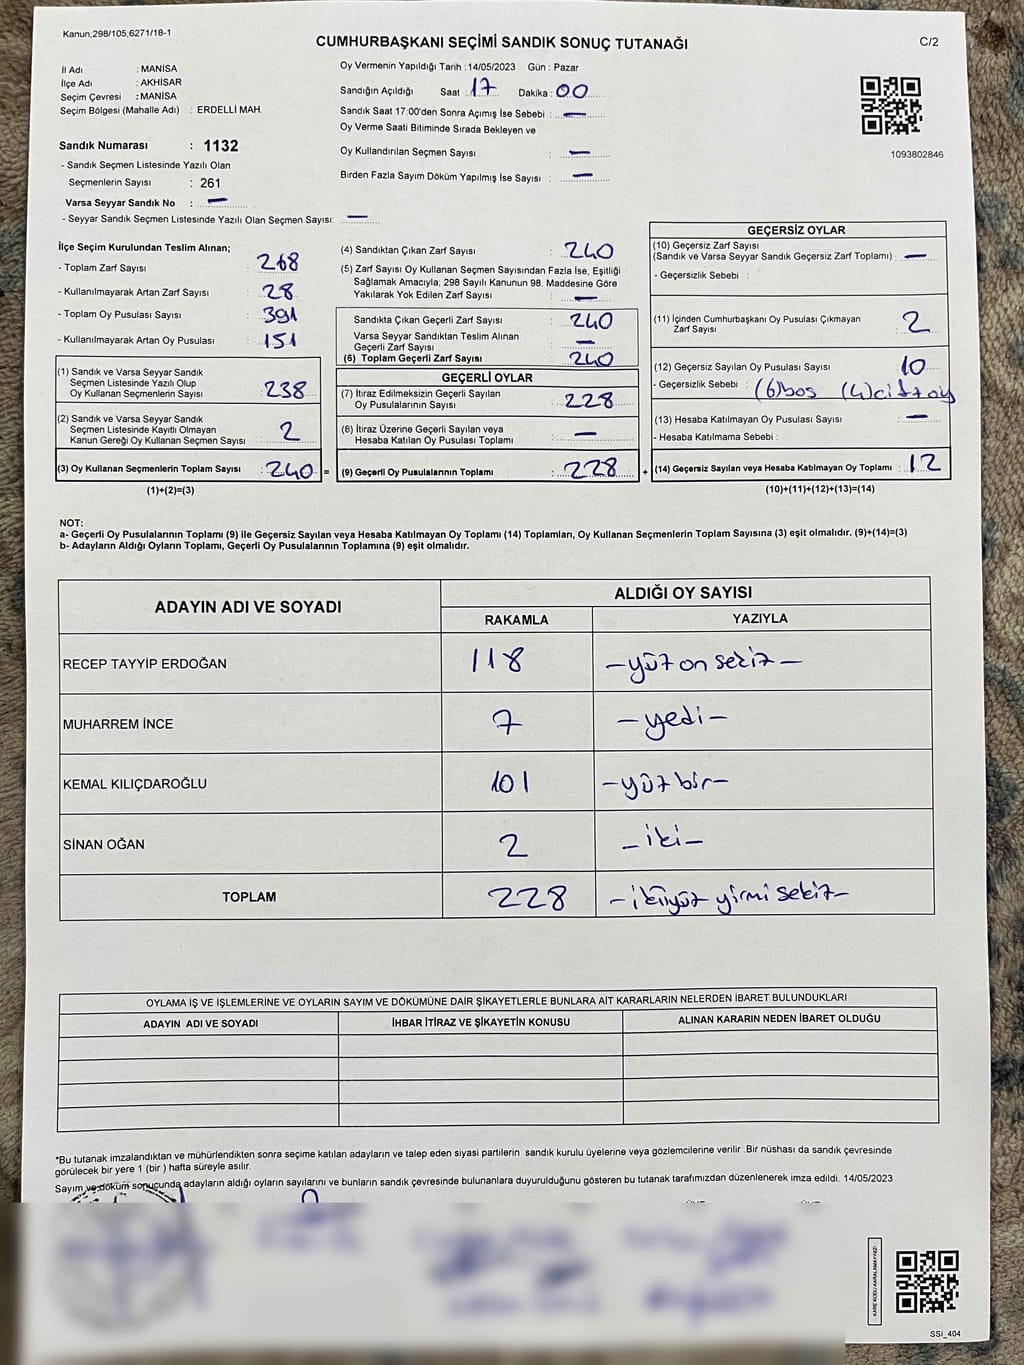 Kanun,298/105,6271/18-1
CUMHURBAŞKANI SEÇİMİ SANDIK SONUÇ TUTANAĞI
C/2
İl Adı : MANİSA
İlçe Adı : AKHİSAR
Seçim Çevresi : MANİSA
Seçim Bölgesi (Mahalle Adı) : ERDELLİ MAH.
Sandık Numarası : 1132
- Sandık Seçmen Listesinde Yazılı Olan
Seçmenlerin Sayısı : 261
Varsa Seyyar Sandık No : —
- Seyyar Sandık Seçmen Listesinde Yazılı Olan Seçmen Sayısı: —
Oy Vermenin Yapıldığı Tarih :14/05/2023 Gün : Pazar
Sandığın Açıldığı Saat : 17 Dakika : 00
Sandık Saat 17:00'den Sonra Açımış İse Sebebi : —
Oy Verme Saati Bitiminde Sırada Bekleyen ve
Oy Kullandırılan Seçmen Sayısı : —
Birden Fazla Sayım Döküm Yapılmış İse Sayısı : —
1093802846
İlçe Seçim Kurulundan Teslim Alınan;
- Toplam Zarf Sayısı : 268
- Kullanılmayarak Artan Zarf Sayısı : 28
- Toplam Oy Pusulası Sayısı : 391
- Kullanılmayarak Artan Oy Pusulası : 151
(1) Sandık ve Varsa Seyyar Sandık
Seçmen Listesinde Yazılı Olup
Oy Kullanan Seçmenlerin Sayısı : 238
(2) Sandık ve Varsa Seyyar Sandık
Seçmen Listesinde Kayıtlı Olmayan
Kanun Gereği Oy Kullanan Seçmen Sayısı : 2
(3) Oy Kullanan Seçmenlerin Toplam Sayısı : 240 =
(1)+(2)=(3)
(4) Sandıktan Çıkan Zarf Sayısı : 240
(5) Zarf Sayısı Oy Kullanan Seçmen Sayısından Fazla İse, Eşitliği
Sağlamak Amacıyla, 298 Sayılı Kanunun 98. Maddesine Göre
Yakılarak Yok Edilen Zarf Sayısı : —
Sandıkta Çıkan Geçerli Zarf Sayısı : 240
Varsa Seyyar Sandıktan Teslim Alınan
Geçerli Zarf Sayısı : —
(6) Toplam Geçerli Zarf Sayısı : 240
GEÇERLİ OYLAR
(7) İtiraz Edilmeksizin Geçerli Sayılan
Oy Pusulalarının Sayısı : 228
(8) İtiraz Üzerine Geçerli Sayılan veya
Hesaba Katılan Oy Pusulası Toplamı : —
(9) Geçerli Oy Pusulalarının Toplamı : 228 +
GEÇERSİZ OYLAR
(10) Geçersiz Zarf Sayısı
(Sandık ve Varsa Seyyar Sandık Geçersiz Zarf Toplamı) : —
- Geçersizlik Sebebi :
(11) İçinden Cumhurbaşkanı Oy Pusulası Çıkmayan
Zarf Sayısı : 2
(12) Geçersiz Sayılan Oy Pusulası Sayısı : 10
- Geçersizlik Sebebi : (6)boş (4)çift oy
(13) Hesaba Katılmayan Oy Pusulası Sayısı : —
- Hesaba Katılmama Sebebi :
(14) Geçersiz Sayılan veya Hesaba Katılmayan Oy Toplamı : 12
(10)+(11)+(12)+(13)=(14)
NOT:
a- Geçerli Oy Pusulalarının Toplamı (9) ile Geçersiz Sayılan veya Hesaba Katılmayan Oy Toplamı (14) Toplamları, Oy Kullanan Seçmenlerin Toplam Sayısına (3) eşit olmalıdır. (9)+(14)=(3)
b- Adayların Aldığı Oyların Toplamı, Geçerli Oy Pusulalarının Toplamına (9) eşit olmalıdır.
ADAYIN ADI VE SOYADI
ALDIĞI OY SAYISI
RAKAMLA YAZIYLA
RECEP TAYYİP ERDOĞAN 118 —yüz on sekiz—
MUHARREM İNCE 7 —yedi—
KEMAL KILIÇDAROĞLU 101 —yüz bir—
SİNAN OĞAN 2 —iki—
TOPLAM 228 —ikiyüz yirmi sekiz—
OYLAMA İŞ VE İŞLEMLERİNE VE OYLARIN SAYIM VE DÖKÜMÜNE DAİR ŞİKAYETLERLE BUNLARA AİT KARARLARIN NELERDEN İBARET BULUNDUKLARI
ADAYIN ADI VE SOYADI İHBAR İTİRAZ VE ŞİKAYETİN KONUSU ALINAN KARARIN NEDEN İBARET OLDUĞU
*Bu tutanak imzalandıktan ve mühürlendikten sonra seçime katılan adayların ve talep eden siyasi partilerin sandık kurulu üyelerine veya gözlemcilerine verilir. Bir nüshası da sandık çevresinde
görülecek bir yere 1 (bir) hafta süreyle asılır.
Sayım ve döküm sonucunda adayların aldığı oyların sayılarını ve bunların sandık çevresinde bulunanlara duyurulduğunu gösteren bu tutanak tarafımızdan düzenlenerek imza edildi. 14/05/2023
KARE KODU KARALAMAYINIZ!
SSI_404